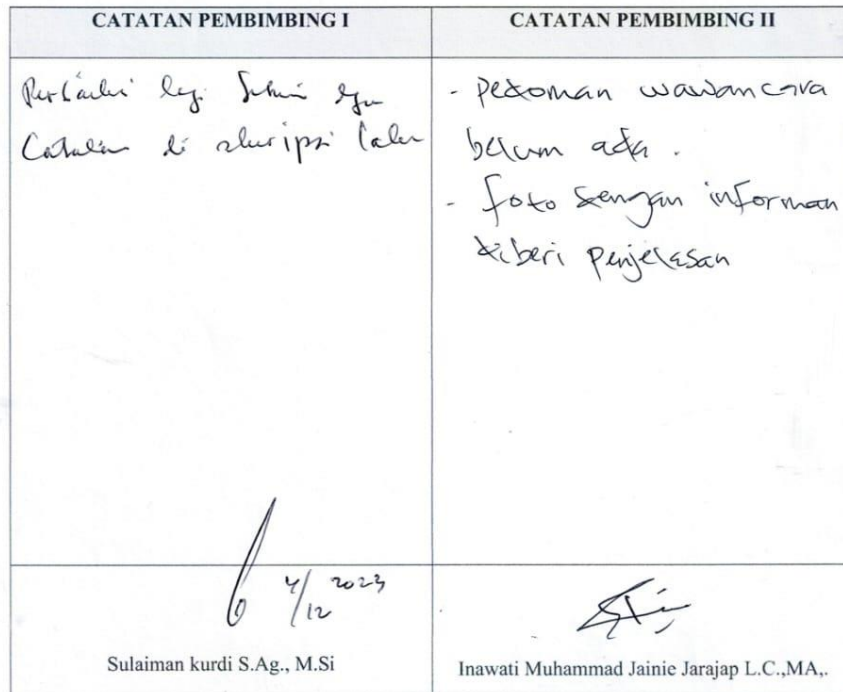 CATATAN PEMBIMBING I
Perbaiki lagi sesuai dgn
Catatan di skripsi
CATATAN PEMBIMBING II
- Pedoman wawancara
belum ada.
- foto dengan informan
diberi penjelasan
4/12 2023
Sulaiman kurdi S.Ag., M.Si
Inawati Muhammad Jainie Jarajap L.C.,MA,.